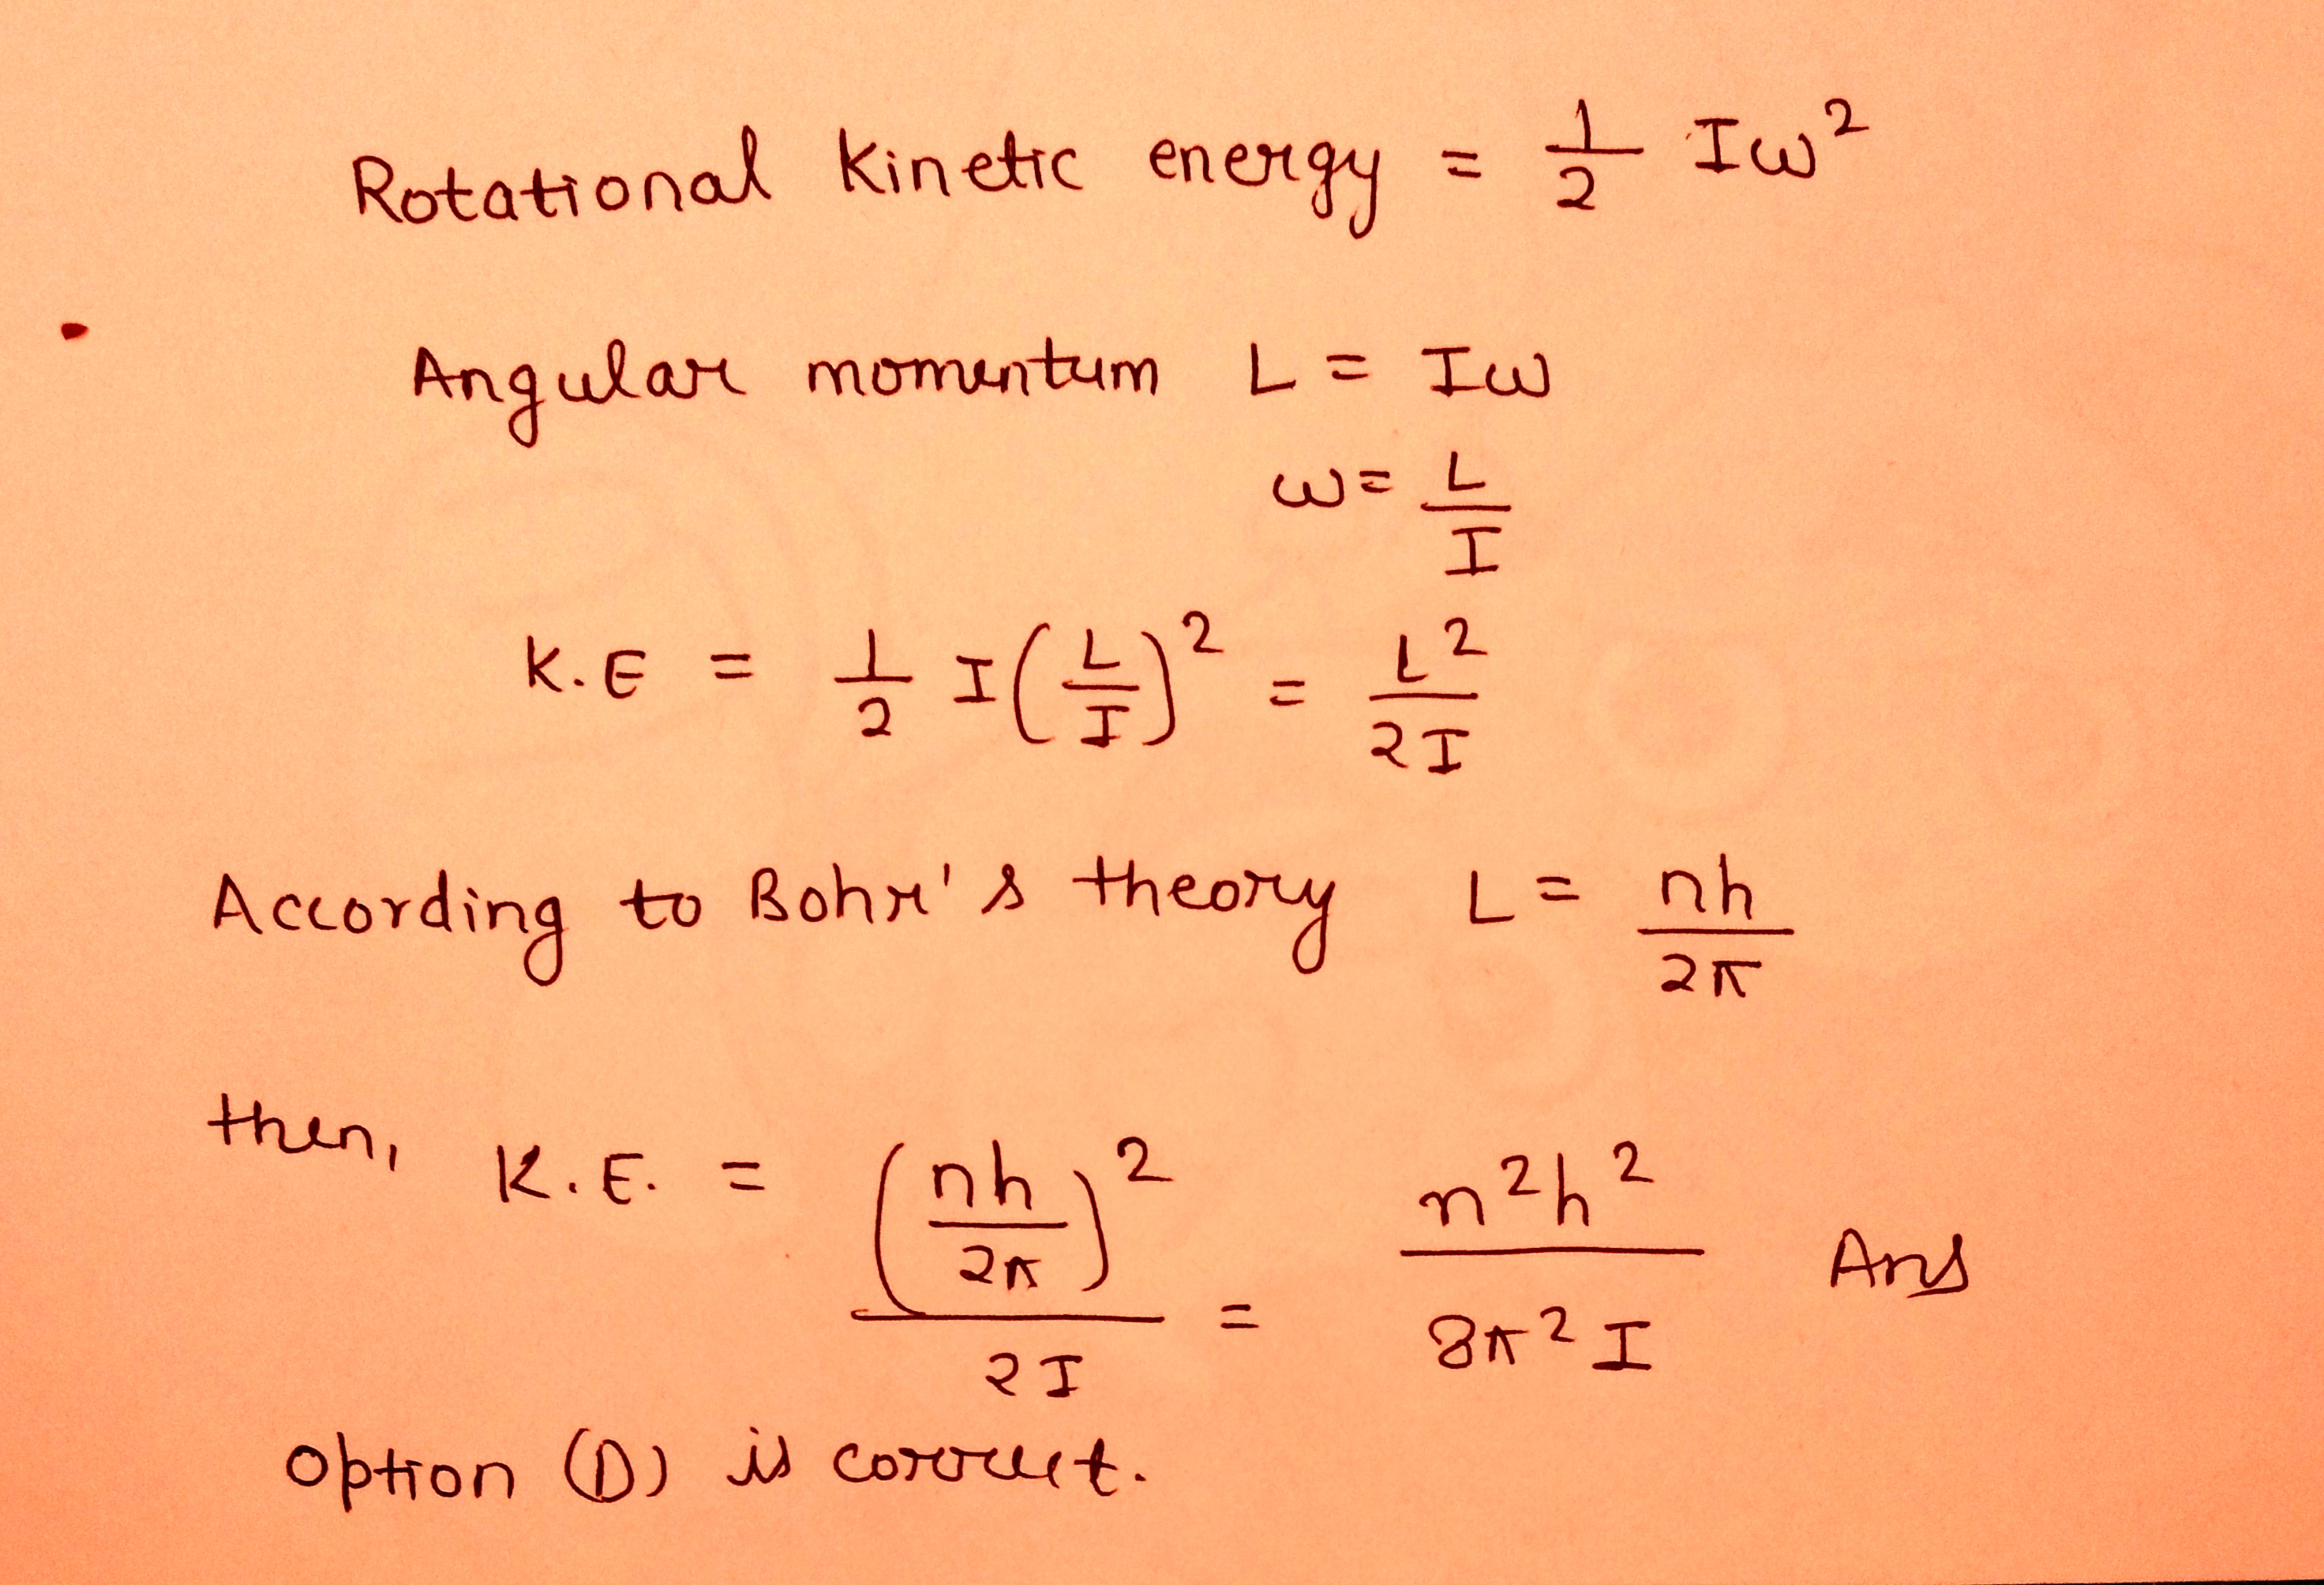 Rotational Kinetic energy = 1/2 Iω²
Angular momentum L = Iω
ω = L/I
K.E = 1/2 I(L/I)² = L²/2I
According to Bohr's theory L = nh/2π
then, K.E. = (nh/2π)²/2I = n²h²/8π²I Ans
option (D) is correct.